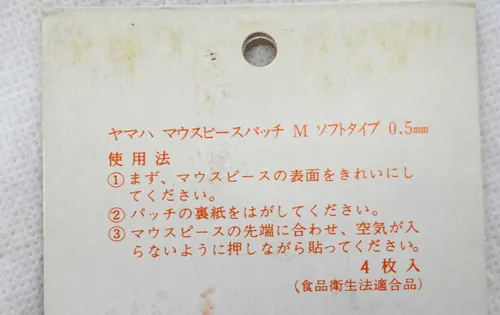 ヤマハ マウスピースパッチ M ソフトタイプ 0.5mm
使用法
①まず、マウスピースの表面をきれいにし
てください。
②パッチの裏紙をはがしてください。
③マウスピースの先端に合わせ、空気が入
らないように押しながら貼ってください。
4枚入
(食品衛生法適合品)